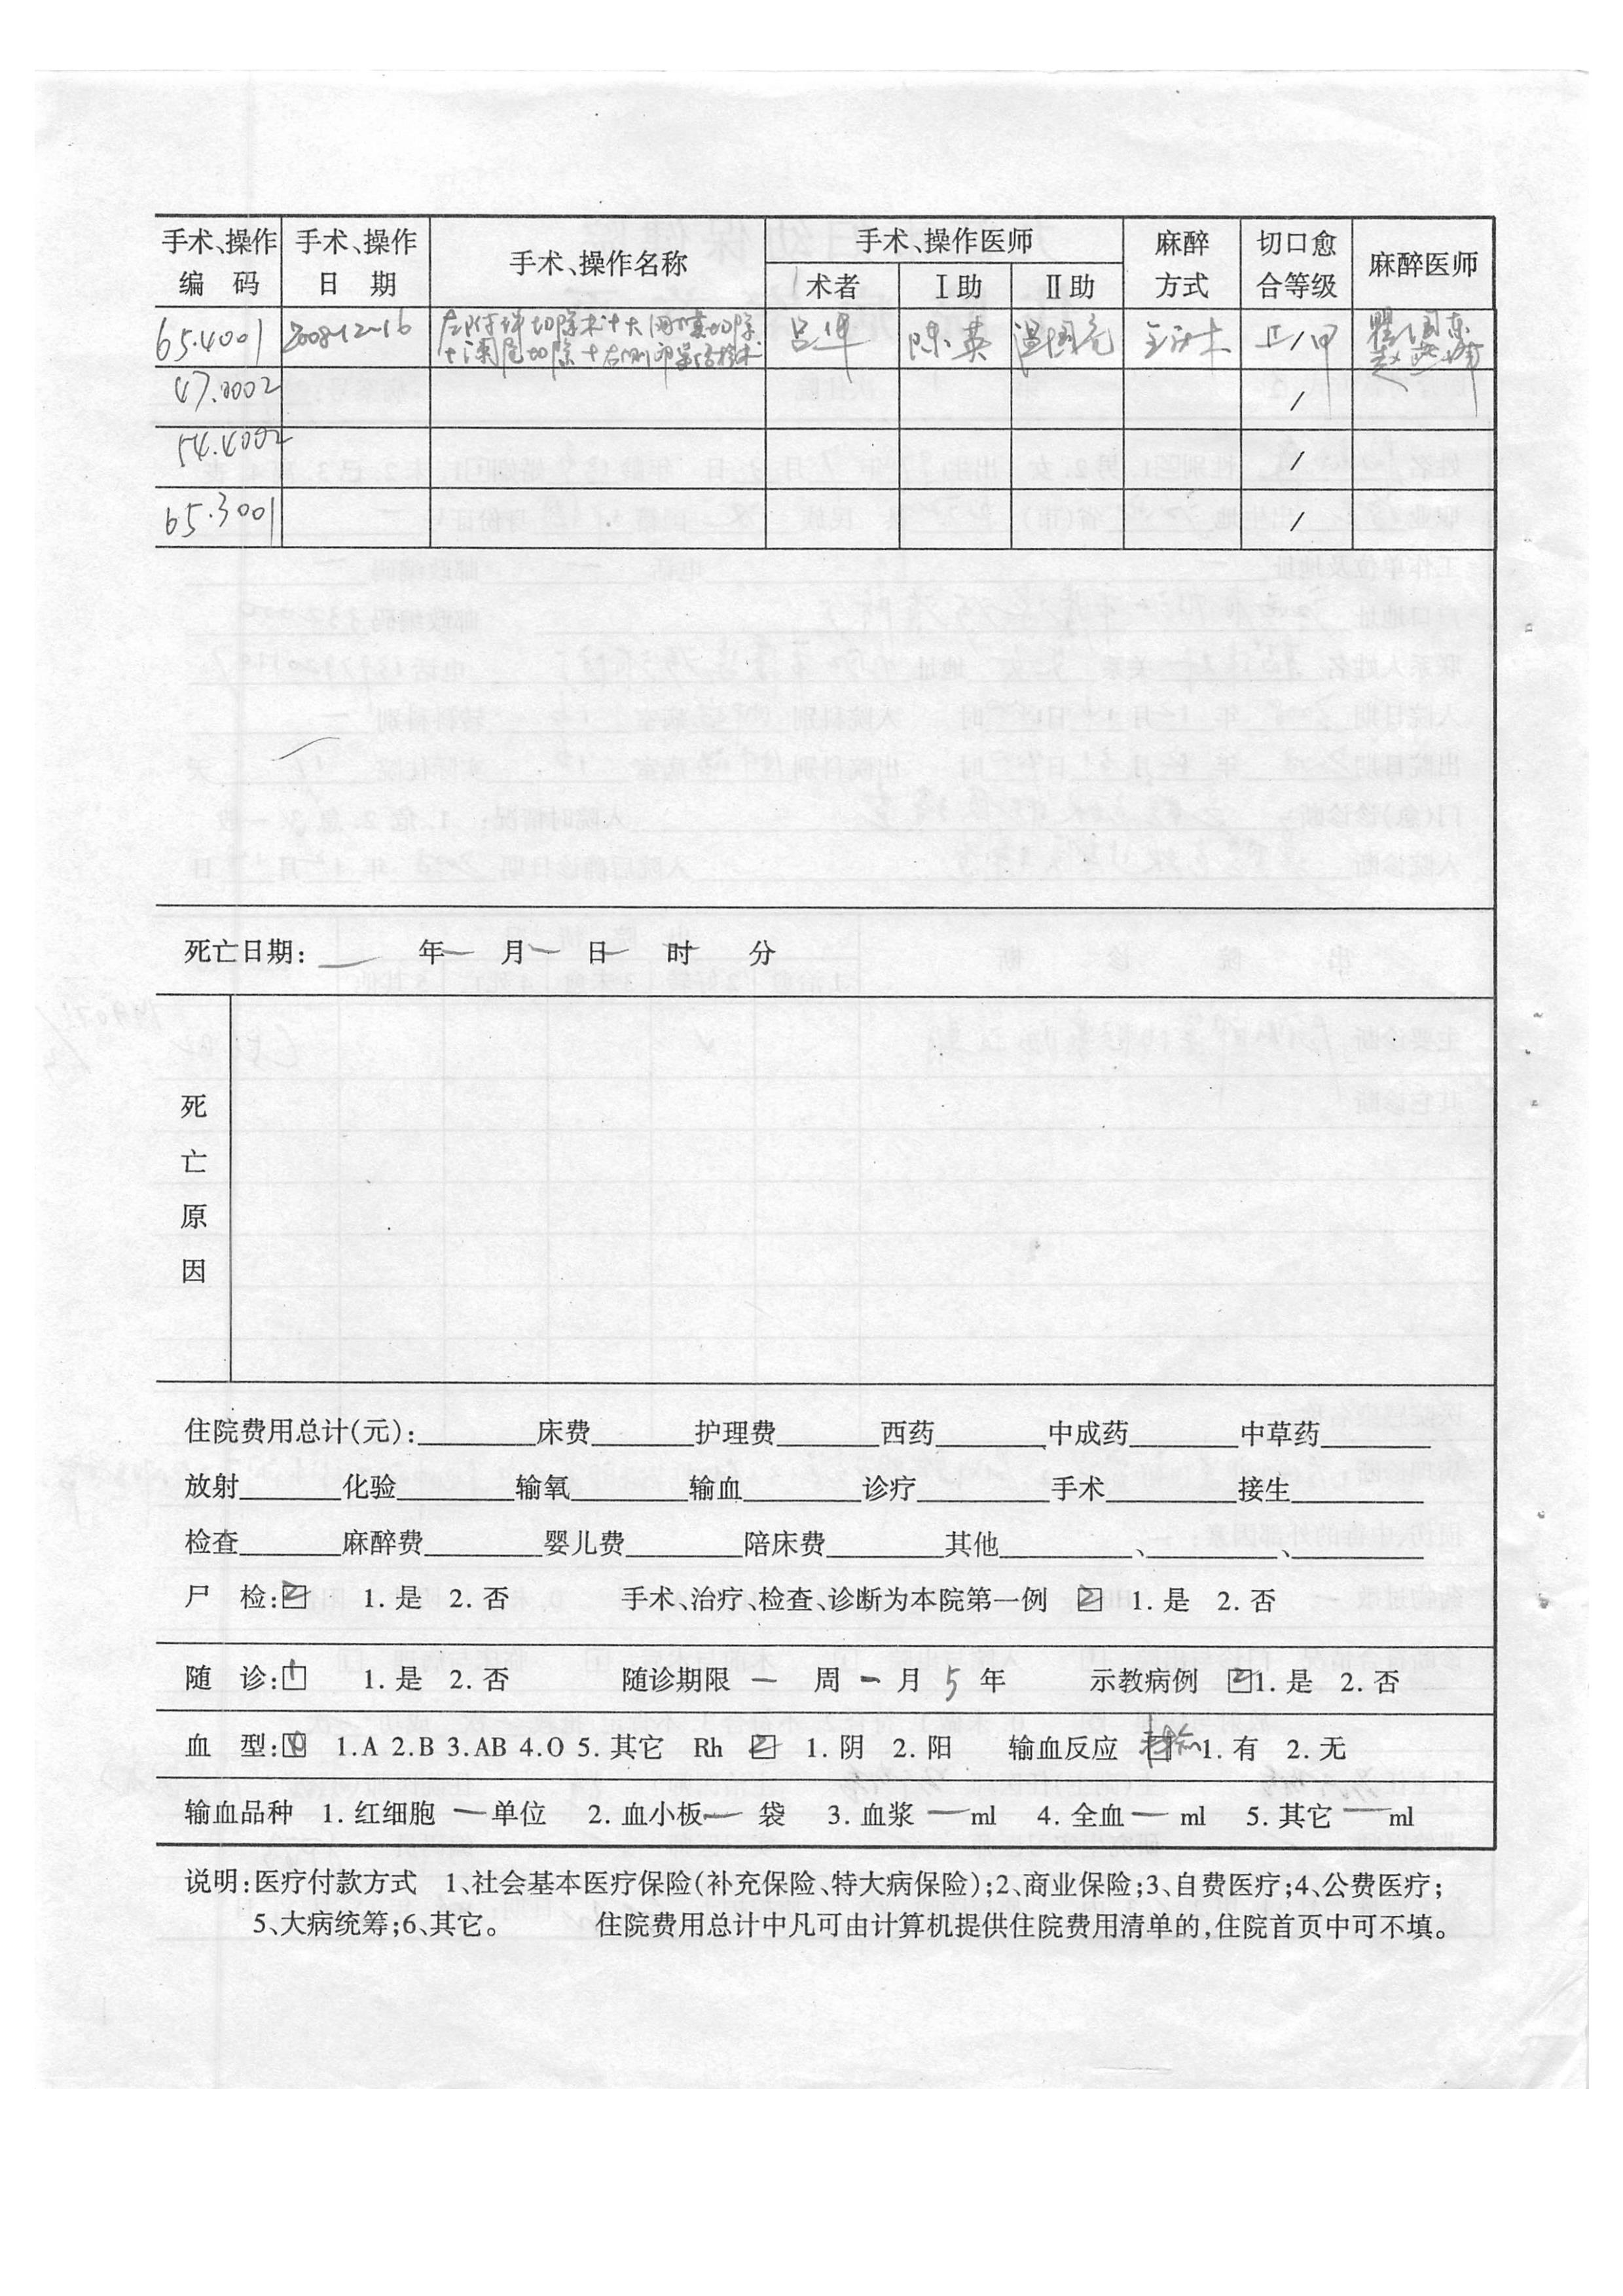 手术、操作编码 手术、操作日期 手术、操作名称 手术、操作医师 麻醉方式 切口愈合等级 麻醉医师
术者 Ⅰ助 Ⅱ助
65.4001 2008-12-16 左附件切除术+大网膜切除 吕 陈英 温国亮 全麻 /甲
+阑尾切除+右侧卵巢活检术
47.0002 /
54.4002 /
65.3001 /
死亡日期: — 年 — 月 — 日 — 时 分
死亡原因
住院费用总计(元):________床费________护理费________西药________中成药________中草药________
放射________化验________输氧________输血________诊疗________手术________接生________
检查________麻醉费________婴儿费________陪床费________其他________、________、________
尸 检:2 1. 是 2. 否 手术、治疗、检查、诊断为本院第一例 2 1. 是 2. 否
随 诊:1 1. 是 2. 否 随诊期限 — 周 — 月 5 年 示教病例 2 1. 是 2. 否
血 型: 1.A 2.B 3.AB 4.O 5. 其它 Rh 2 1. 阴 2. 阳 输血反应 1. 有 2. 无
输血品种 1. 红细胞 — 单位 2. 血小板 — 袋 3. 血浆 — ml 4. 全血 — ml 5. 其它 — ml
说明:医疗付款方式 1、社会基本医疗保险(补充保险、特大病保险);2、商业保险;3、自费医疗;4、公费医疗;
5、大病统筹;6、其它。 住院费用总计中凡可由计算机提供住院费用清单的,住院首页中可不填。